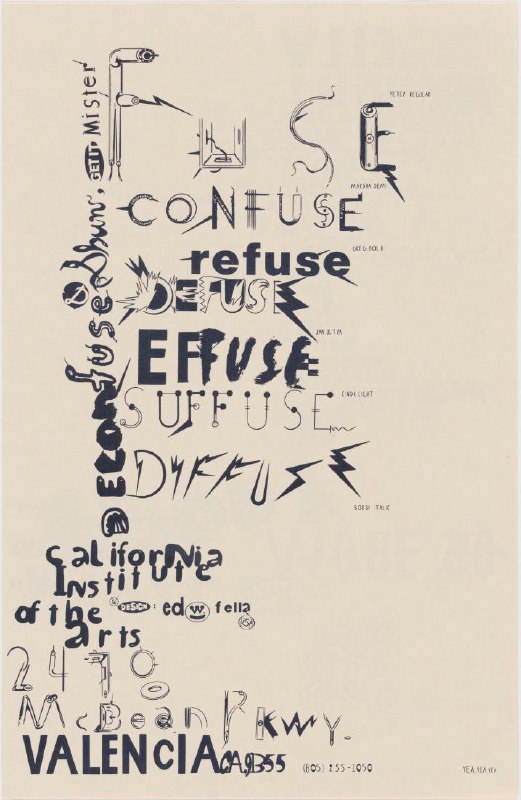 FUSE
PETER REGULAR
CONFUSE
MARSHA DEMI
refuse
DEFUSE
EFFUSE
CINDY LIGHT
SUFFUSE
DIFFUSE
BOBBI ITALIC
DECONfuse
Mister
California
Institute
of the
Arts
DESIGN: ed w fella
USA
2470
McBean Pkwy.
VALENCIA CA, 91355 (805) 255-1050
YEA, YEA, YEA